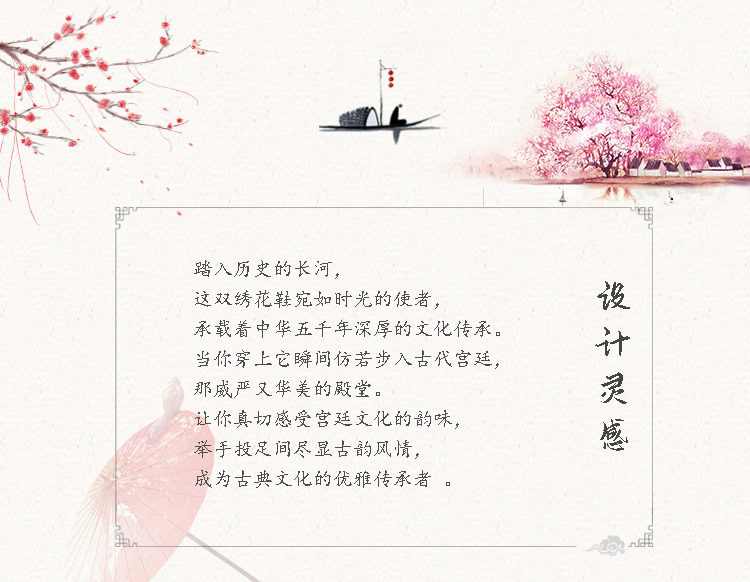 设计灵感
踏入历史的长河，
这双绣花鞋宛如时光的使者，
承载着中华五千年深厚的文化传承。
当你穿上它瞬间仿若步入古代宫廷，
那威严又华美的殿堂。
让你真切感受宫廷文化的韵味，
举手投足间尽显古韵风情，
成为古典文化的优雅传承者 。